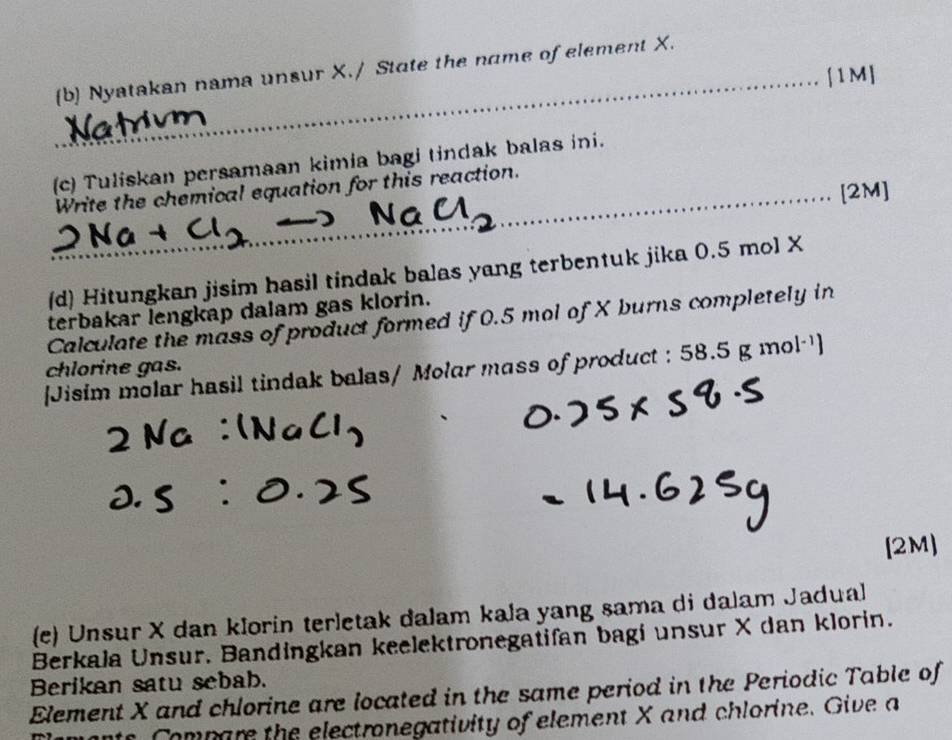 (b) Nyatakan nama unsur X./ State the name of element X.
Natrium
[1M]
(c) Tuliskan persamaan kimia bagi tindak balas ini.
Write the chemical equation for this reaction.
2Na + Cl2 → NaCl2
[2M]
(d) Hitungkan jisim hasil tindak balas yang terbentuk jika 0.5 mol X
terbakar lengkap dalam gas klorin.
Calculate the mass of product formed if 0.5 mol of X burns completely in
chlorine gas.
[Jisim molar hasil tindak balas/ Molar mass of product : 58.5 g mol⁻¹]
2 Na : 1NaCl2
0.25 x 58.5
0.5 : 0.25
= 14.625g
[2M]
(e) Unsur X dan klorin terletak dalam kala yang sama di dalam Jadual
Berkala Unsur. Bandingkan keelektronegatifan bagi unsur X dan klorin.
Berikan satu sebab.
Element X and chlorine are located in the same period in the Periodic Table of
Compare the electronegativity of element X and chlorine. Give a